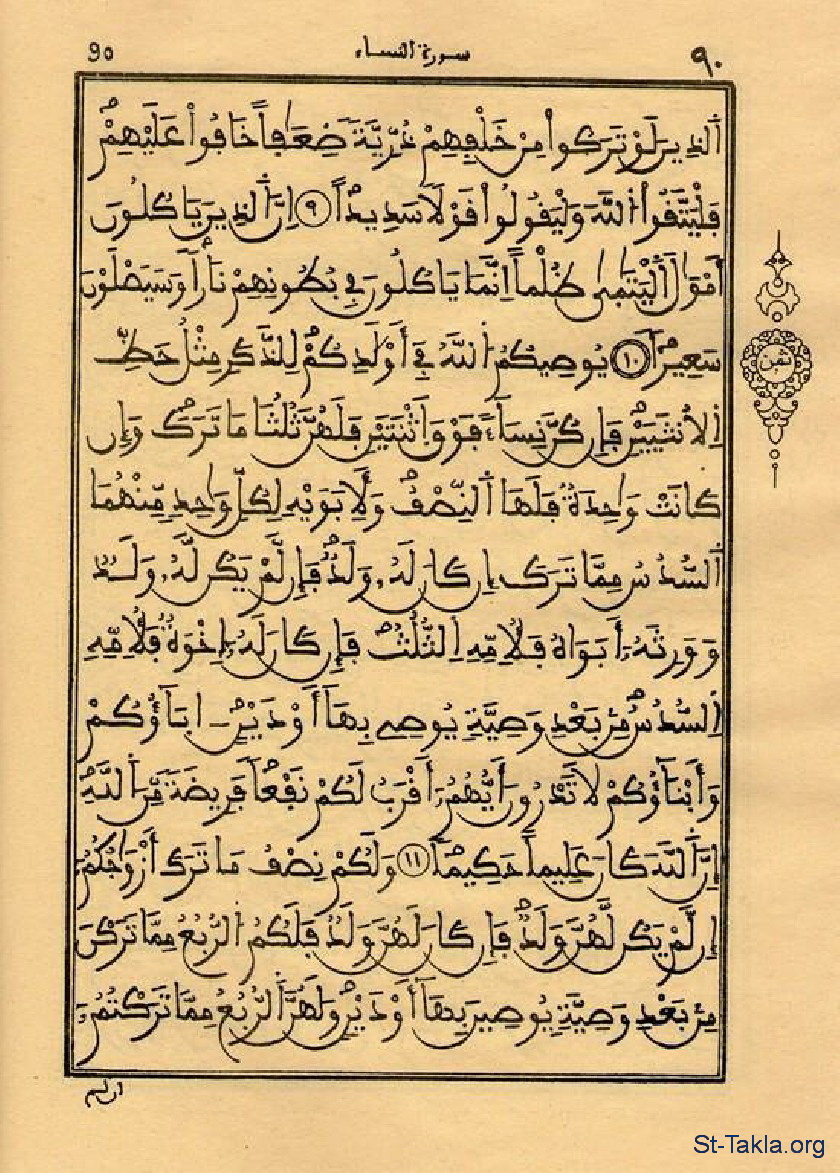 90 سورة النساء ٩٠
اَ۬لذِينَ لَوْ تَرَكُواْ مِنْ خَلْفِهِمْ ذُرِّيَّةٗ ضِعَٰفاً خَافُواْ عَلَيْهِمْ
فَلْيَتَّقُواْ اُ۬للَّهَ وَلْيَقُولُواْ قَوْلٗا سَدِيداً ٩ اِنَّ اَ۬لذِينَ يَاكُلُونَ
أَمْوَٰلَ اَ۬لْيَتَٰمَىٰ ظُلْماً اِنَّمَا يَاكُلُونَ فِے بُطُونِهِمْ نَاراٗ وَسَيَصْلَوْنَ
سَعِيراٗ ١٠ يُوصِيكُمُ اُ۬للَّهُ فِے أَوْلَٰدِكُمْ لِلذَّكَرِ مِثْلُ حَظِّ
اِ۬لُانثَيَيْنِ فَإِن كُنَّ نِسَآءٗ فَوْقَ اَ۪ثْنَتَيْنِ فَلَهُنَّ ثُلُثَا مَا تَرَكَ وَإِن
كَانَتْ وَٰحِدَةٞ فَلَهَا اَ۬لنِّصْفُ وَلِأَبَوَيْهِ لِكُلِّ وَٰحِدٖ مِّنْهُمَا
اَ۬لسُّدُسُ مِمَّا تَرَكَ إِن كَانَ لَهُۥ وَلَدٞ فَإِن لَّمْ يَكُن لَّهُۥ وَلَدٞ
وَوَرِثَهُۥٓ أَبَوَٰهُ فَلِأُمِّهِ اِ۬لثُّلُثُ فَإِن كَانَ لَهُۥٓ إِخْوَةٞ فَلِأُمِّهِ
اِ۬لسُّدُسُ مِنۢ بَعْدِ وَصِيَّةٖ يُوصِے بِهَآ أَوْ دَيْنٍ ـ اٰبَآؤُكُمْ
وَأَبْنَآؤُكُمْ لَا تَدْرُونَ أَيُّهُمُۥٓ أَقْرَبُ لَكُمْ نَفْعاٗ فَرِيضَةٗ مِّنَ اَ۬للَّهِ
إِنَّ اَ۬للَّهَ كَانَ عَلِيماً حَكِيماٗ ١١ وَلَكُمْ نِصْفُ مَا تَرَكَ أَزْوَٰجُكُمُۥٓ
إِن لَّمْ يَكُن لَّهُنَّ وَلَدٞ فَإِن كَانَ لَهُنَّ وَلَدٞ فَلَكُمُ اُ۬لرُّبُعُ مِمَّا تَرَكْنَ
مِنۢ بَعْدِ وَصِيَّةٖ يُوصِينَ بِهَآ أَوْ دَيْنٖ وَلَهُنَّ اَ۬لرُّبُعُ مِمَّا تَرَكْتُمُۥٓ
ثمن
إن لم
St-Takla.org